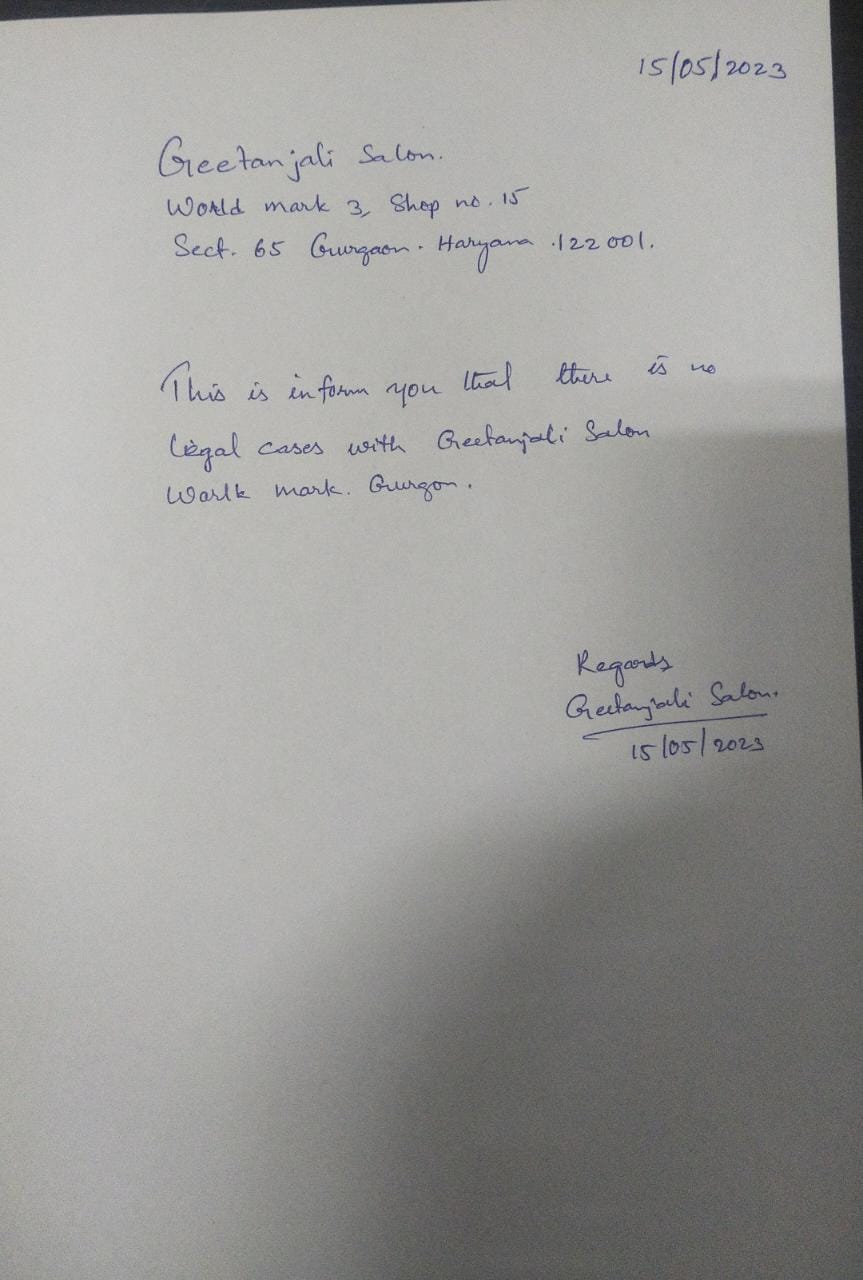 15/05/2023
Geetanjali Salon.
World mark 3, Shop no. 15
Sect. 65 Gurgaon. Haryana .122001.
This is inform you that there is no
legal cases with Geetanjali Salon
Warlk mark. Gurgon.
Regards
Geetanjali Salon.
15/05/2023